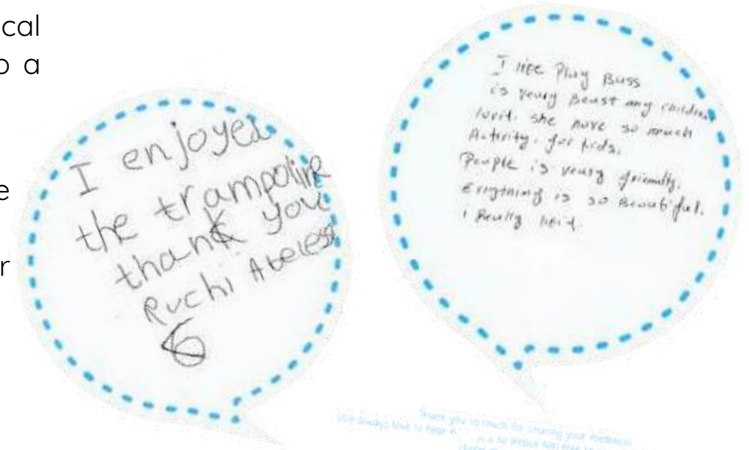 cal
o a
e
r
I enjoyed
the trampoline
thank you
Ruchi
6
I like Play Buss
is veury Beast my children
lovit. she have so much
Activity. for kids.
People is veury friendly.
Evrything is so Beautiful.
I Really lik it
Thank you so much for sharing your feedback!
We always love to hear it